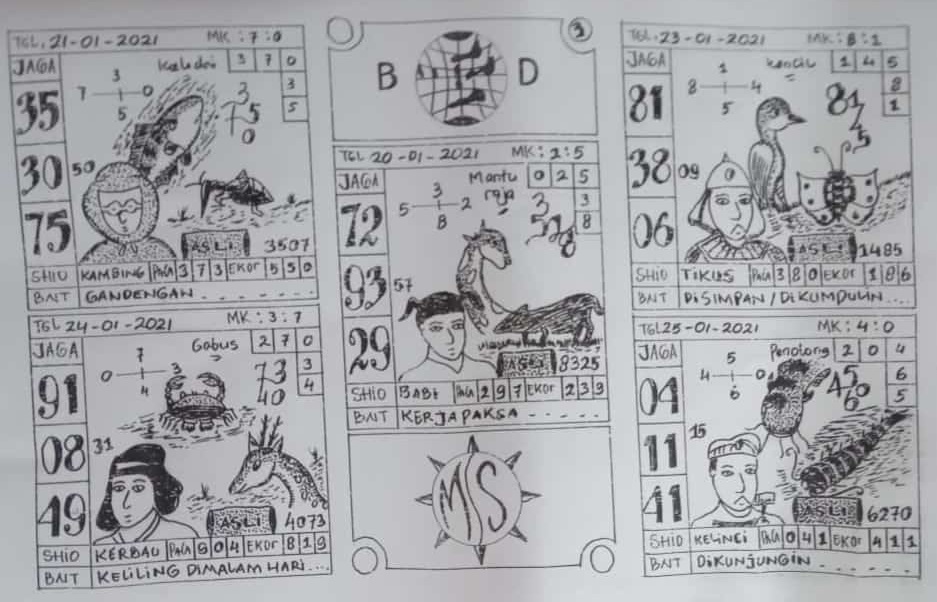 TGL. 21-01-2021 MK : 7 : 0
JAGA Keledai 3 7 0
35 3 7 0 5 3 5
3 75 0
30 50
75
ASLI 3507
SHIO KAMBING PALA 3 7 3 EKOR 5 5 0
BAIT GANDENGAN.......
TGL 24-01-2021 MK : 3 : 7
JAGA Gabus 2 7 0
91 7 0 3 4 3 4
73 40
08 31
49
ASLI 4073
SHIO KERBAU PALA 9 0 4 EKOR 8 1 9
BAIT KELILING DIMALAM HARI....
2
B D
TGL 20-01-2021 MK : 2 : 5
JAGA Mantu raja 0 2 5
72 3 5 2 8 3 8
93 57
29
ASLI 8325
SHIO BABI PALA 2 9 7 EKOR 2 3 9
BAIT KERJA PAKSA......
MS
TGL. 23-01-2021 MK : 8 : 1
JAGA kancil 1 4 5
81 1 8 4 5 8 1
81 4 5
38 09
06
ASLI 1485
SHIO TIKUS PALA 3 8 0 EKOR 1 8 6
BAIT DISIMPAN / DIKUMPULIN....
TGL 25-01-2021 MK : 4 : 0
JAGA Penolong 2 0 4
04 5 4 0 6 6 5
45 6 0
11 15
41
ASLI 6270
SHIO KELINCI PALA 0 4 1 EKOR 4 1 1
BAIT DIKUNJUNGIN......